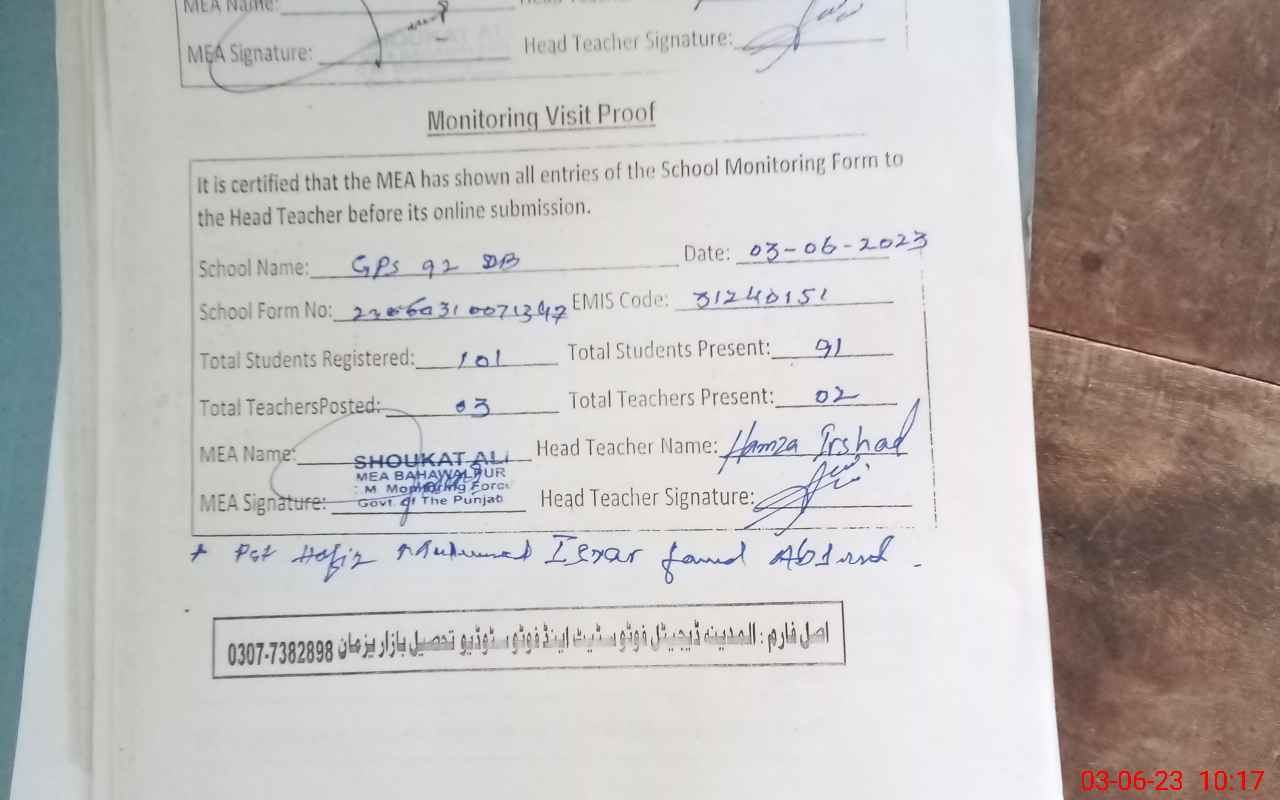 MEA Name:
MEA Signature: Head Teacher Signature:
Monitoring Visit Proof
It is certified that the MEA has shown all entries of the School Monitoring Form to
the Head Teacher before its online submission.
School Name: GPS 92 DB Date: 03-06-2023
School Form No: EMIS Code: 31240151
Total Students Registered: 101 Total Students Present: 91
Total TeachersPosted: 03 Total Teachers Present: 02
MEA Name: Head Teacher Name: Hamza Irshad
SHOUKAT ALI
MEA BAHAWALPUR
M Monitoring Force
Govt. of The Punjab
MEA Signature: Head Teacher Signature:
* Pst Hafiz Muhammad found Absend.
اصل فارم : المدینہ ڈیجیٹل فوٹو سٹیٹ اینڈ فوٹو سٹوڈیو تحصیل بازار یزمان 0307-7382898
03-06-23 10:17